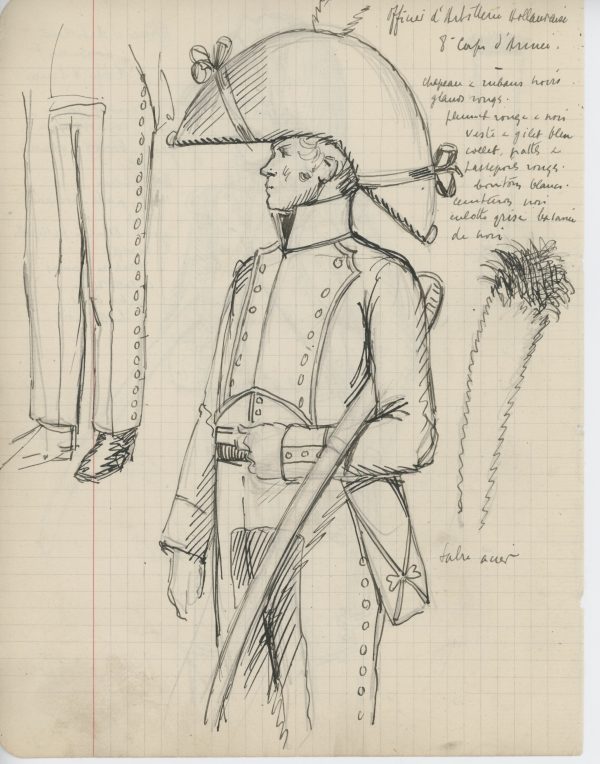 Officier d'Artillerie Hollandaise
8e Corps d'Armée.
chapeau à rubans noirs.
glands rouges.
plumet rouge à noir
veste & gilet bleu
collet, pattes &
passepoils rouges.
boutons blancs.
ceinturon noir
culotte grise basanée
de noir
Sabre acier